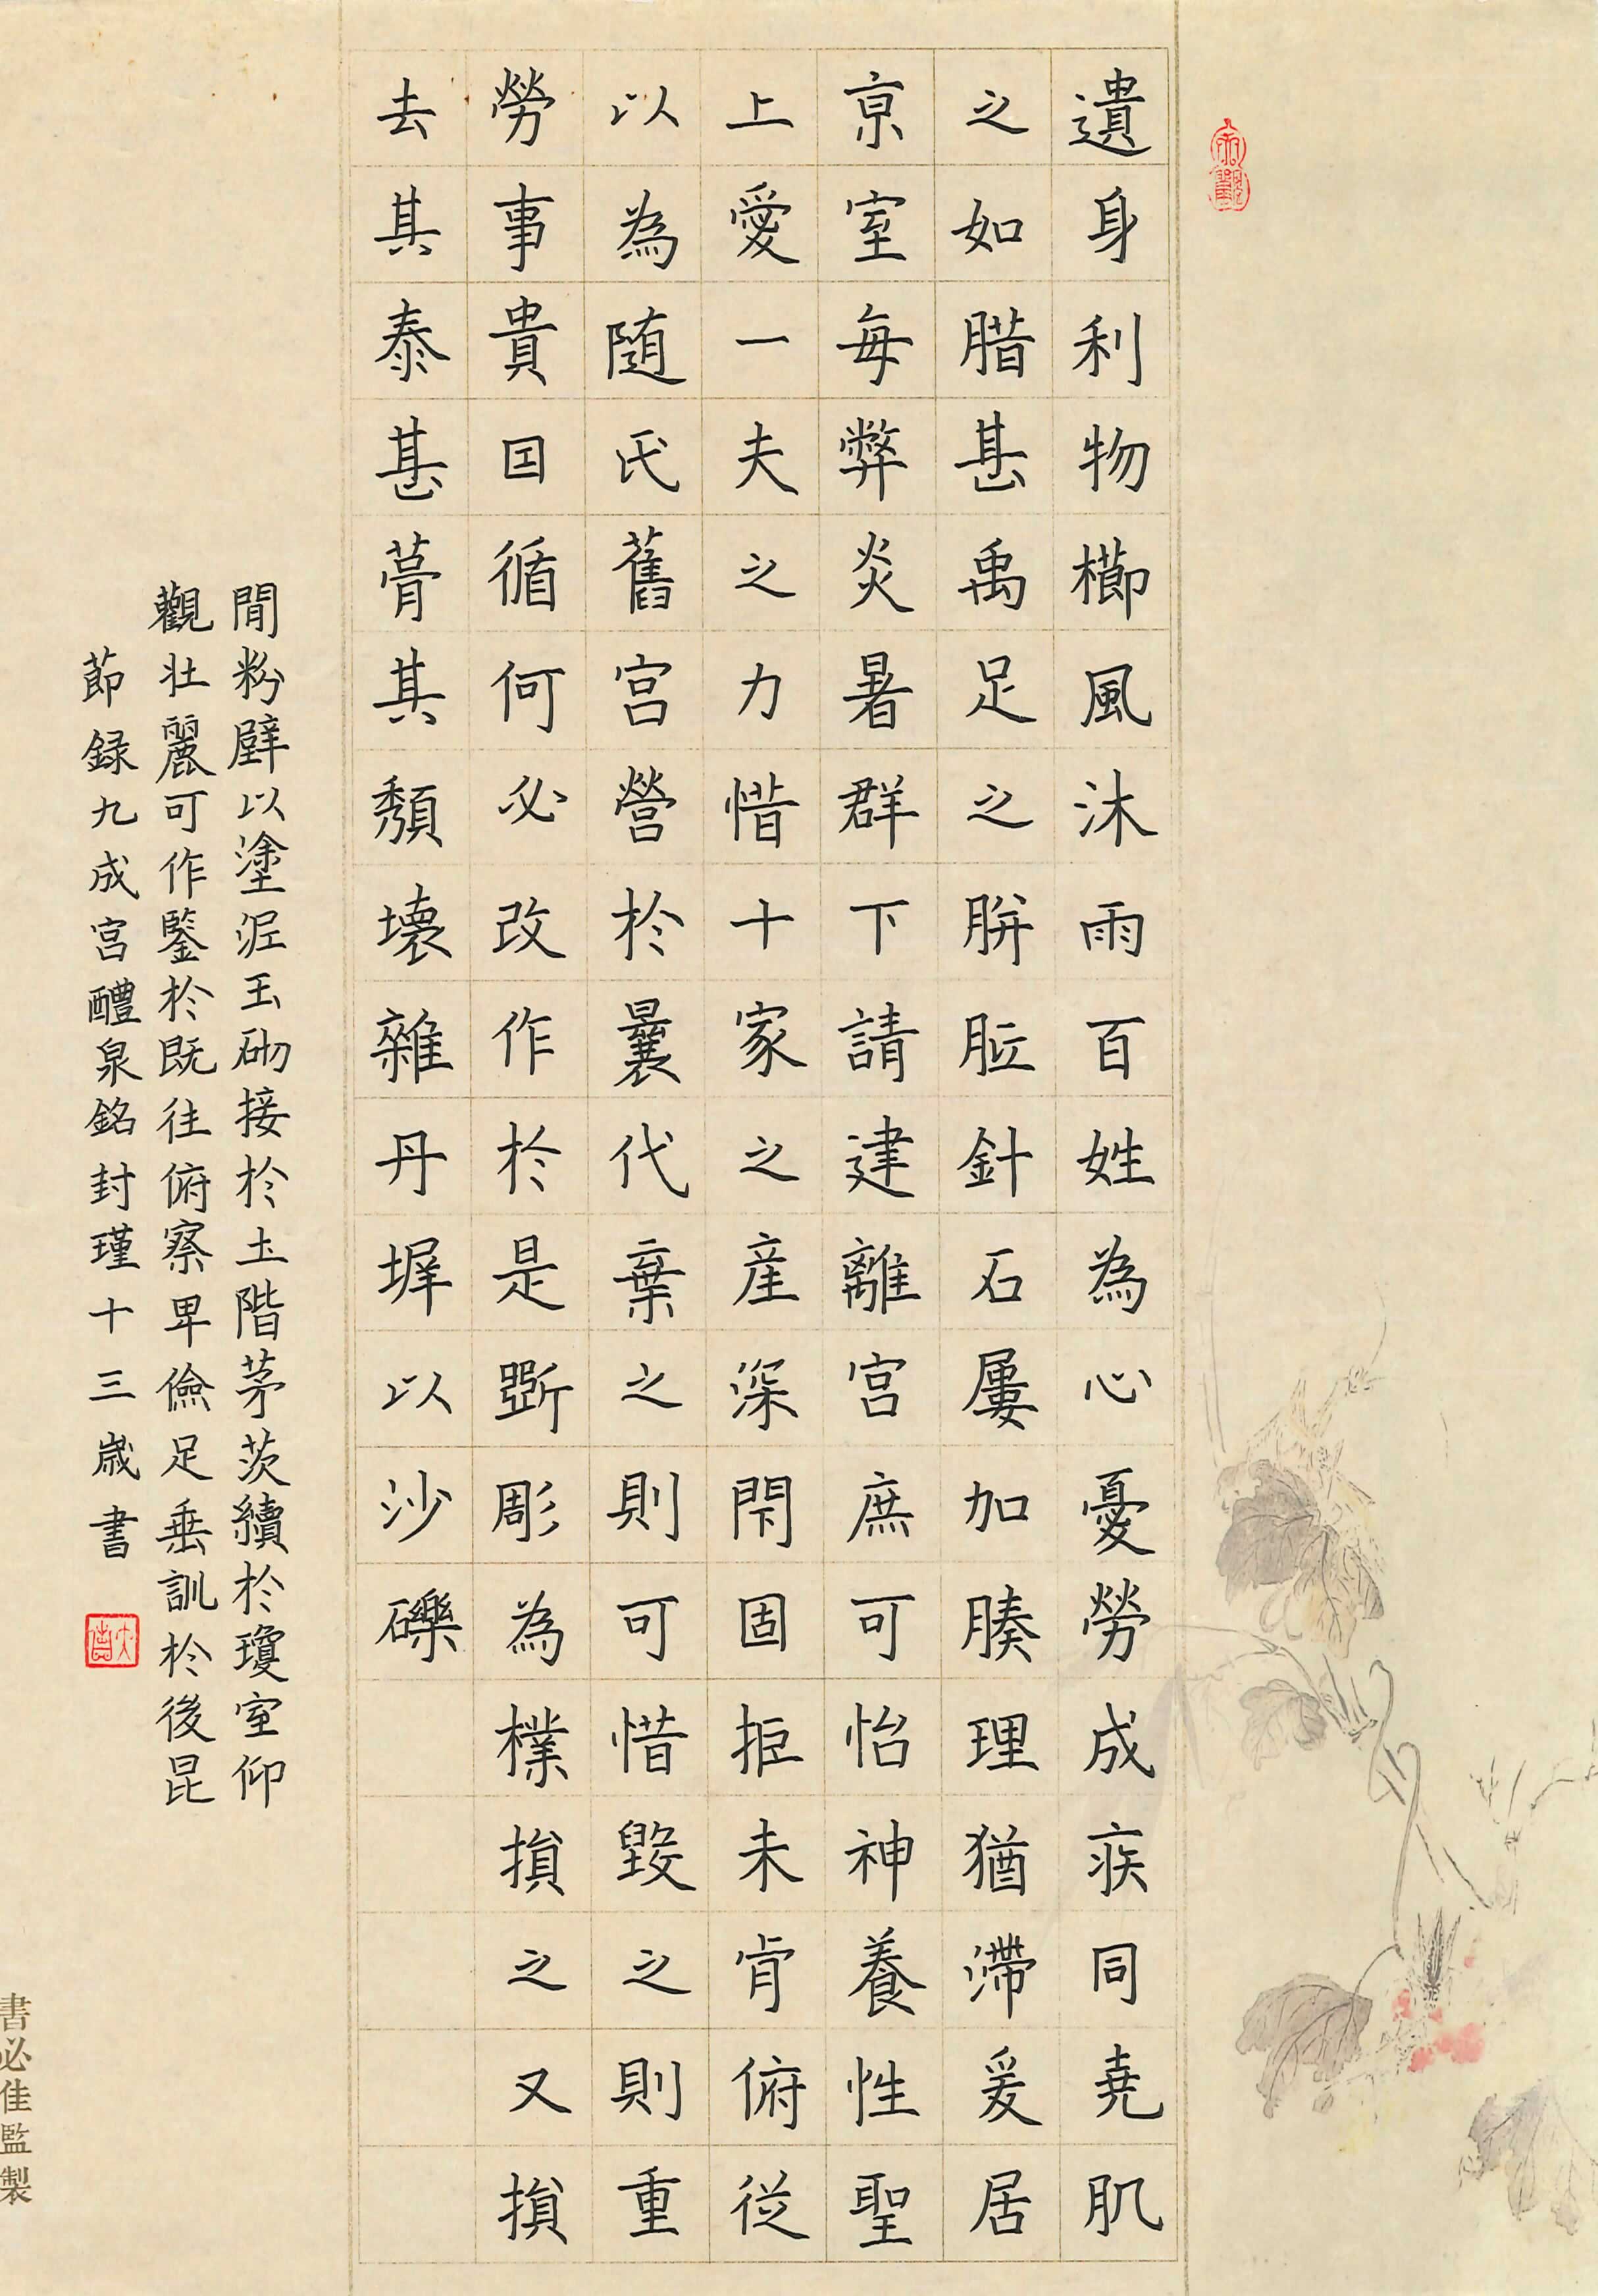 遺身利物櫛風沐雨百姓為心憂勞成疾同堯肌
之如腊甚禹足之胼胝針石屢加腠理猶滯爰居
京室每弊炎暑群下請建離宮庶可怡神養性聖
上愛一夫之力惜十家之產深閇固拒未肯俯從
以為随氏舊宮營於曩代棄之則可惜毀之則重
勞事貴因循何必改作於是斲彫為樸損之又損
去其泰甚葺其頹壞雜丹墀以沙礫
閒粉壁以塗泥玉砌接於土階茅茨續於瓊室仰
觀壯麗可作鑒於既往俯察卑儉足垂訓於後昆
節錄九成宮醴泉銘封瑾十三歲書
書必佳監製